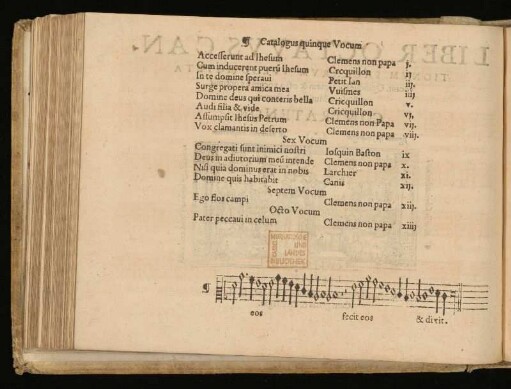 ¶ Catalogus quinque Vocum
Accesserunt ad Ihesum Clemens non papa j.
Cum inducerent pueri Ihesum Crequillon ij
In te domine speravi Petit Ian iij
Surge propera amica mea Vuismes iiij
Domine deus qui conteris bella Cricquillon v.
Audi filia & vide Cricquillon vj.
Assumpsit Ihesus Petrum Clemens non Papa vij.
Vox clamantis in deserto Clemens non papa viij.
Sex Vocum
Congregati sunt inimici nostri Iosquin Baston ix
Deus in adiutorium meū intende Clemens non papa x.
Nisi quia dominus erat in nobis Larchier xi.
Domine quis habitabit Canis xij.
Septem Vocum
Ego flos campi Clemens non papa xiij.
Octo Vocum
Pater peccavi in celum Clemens non papa xiiij
¶
eos fecit eos & divit.